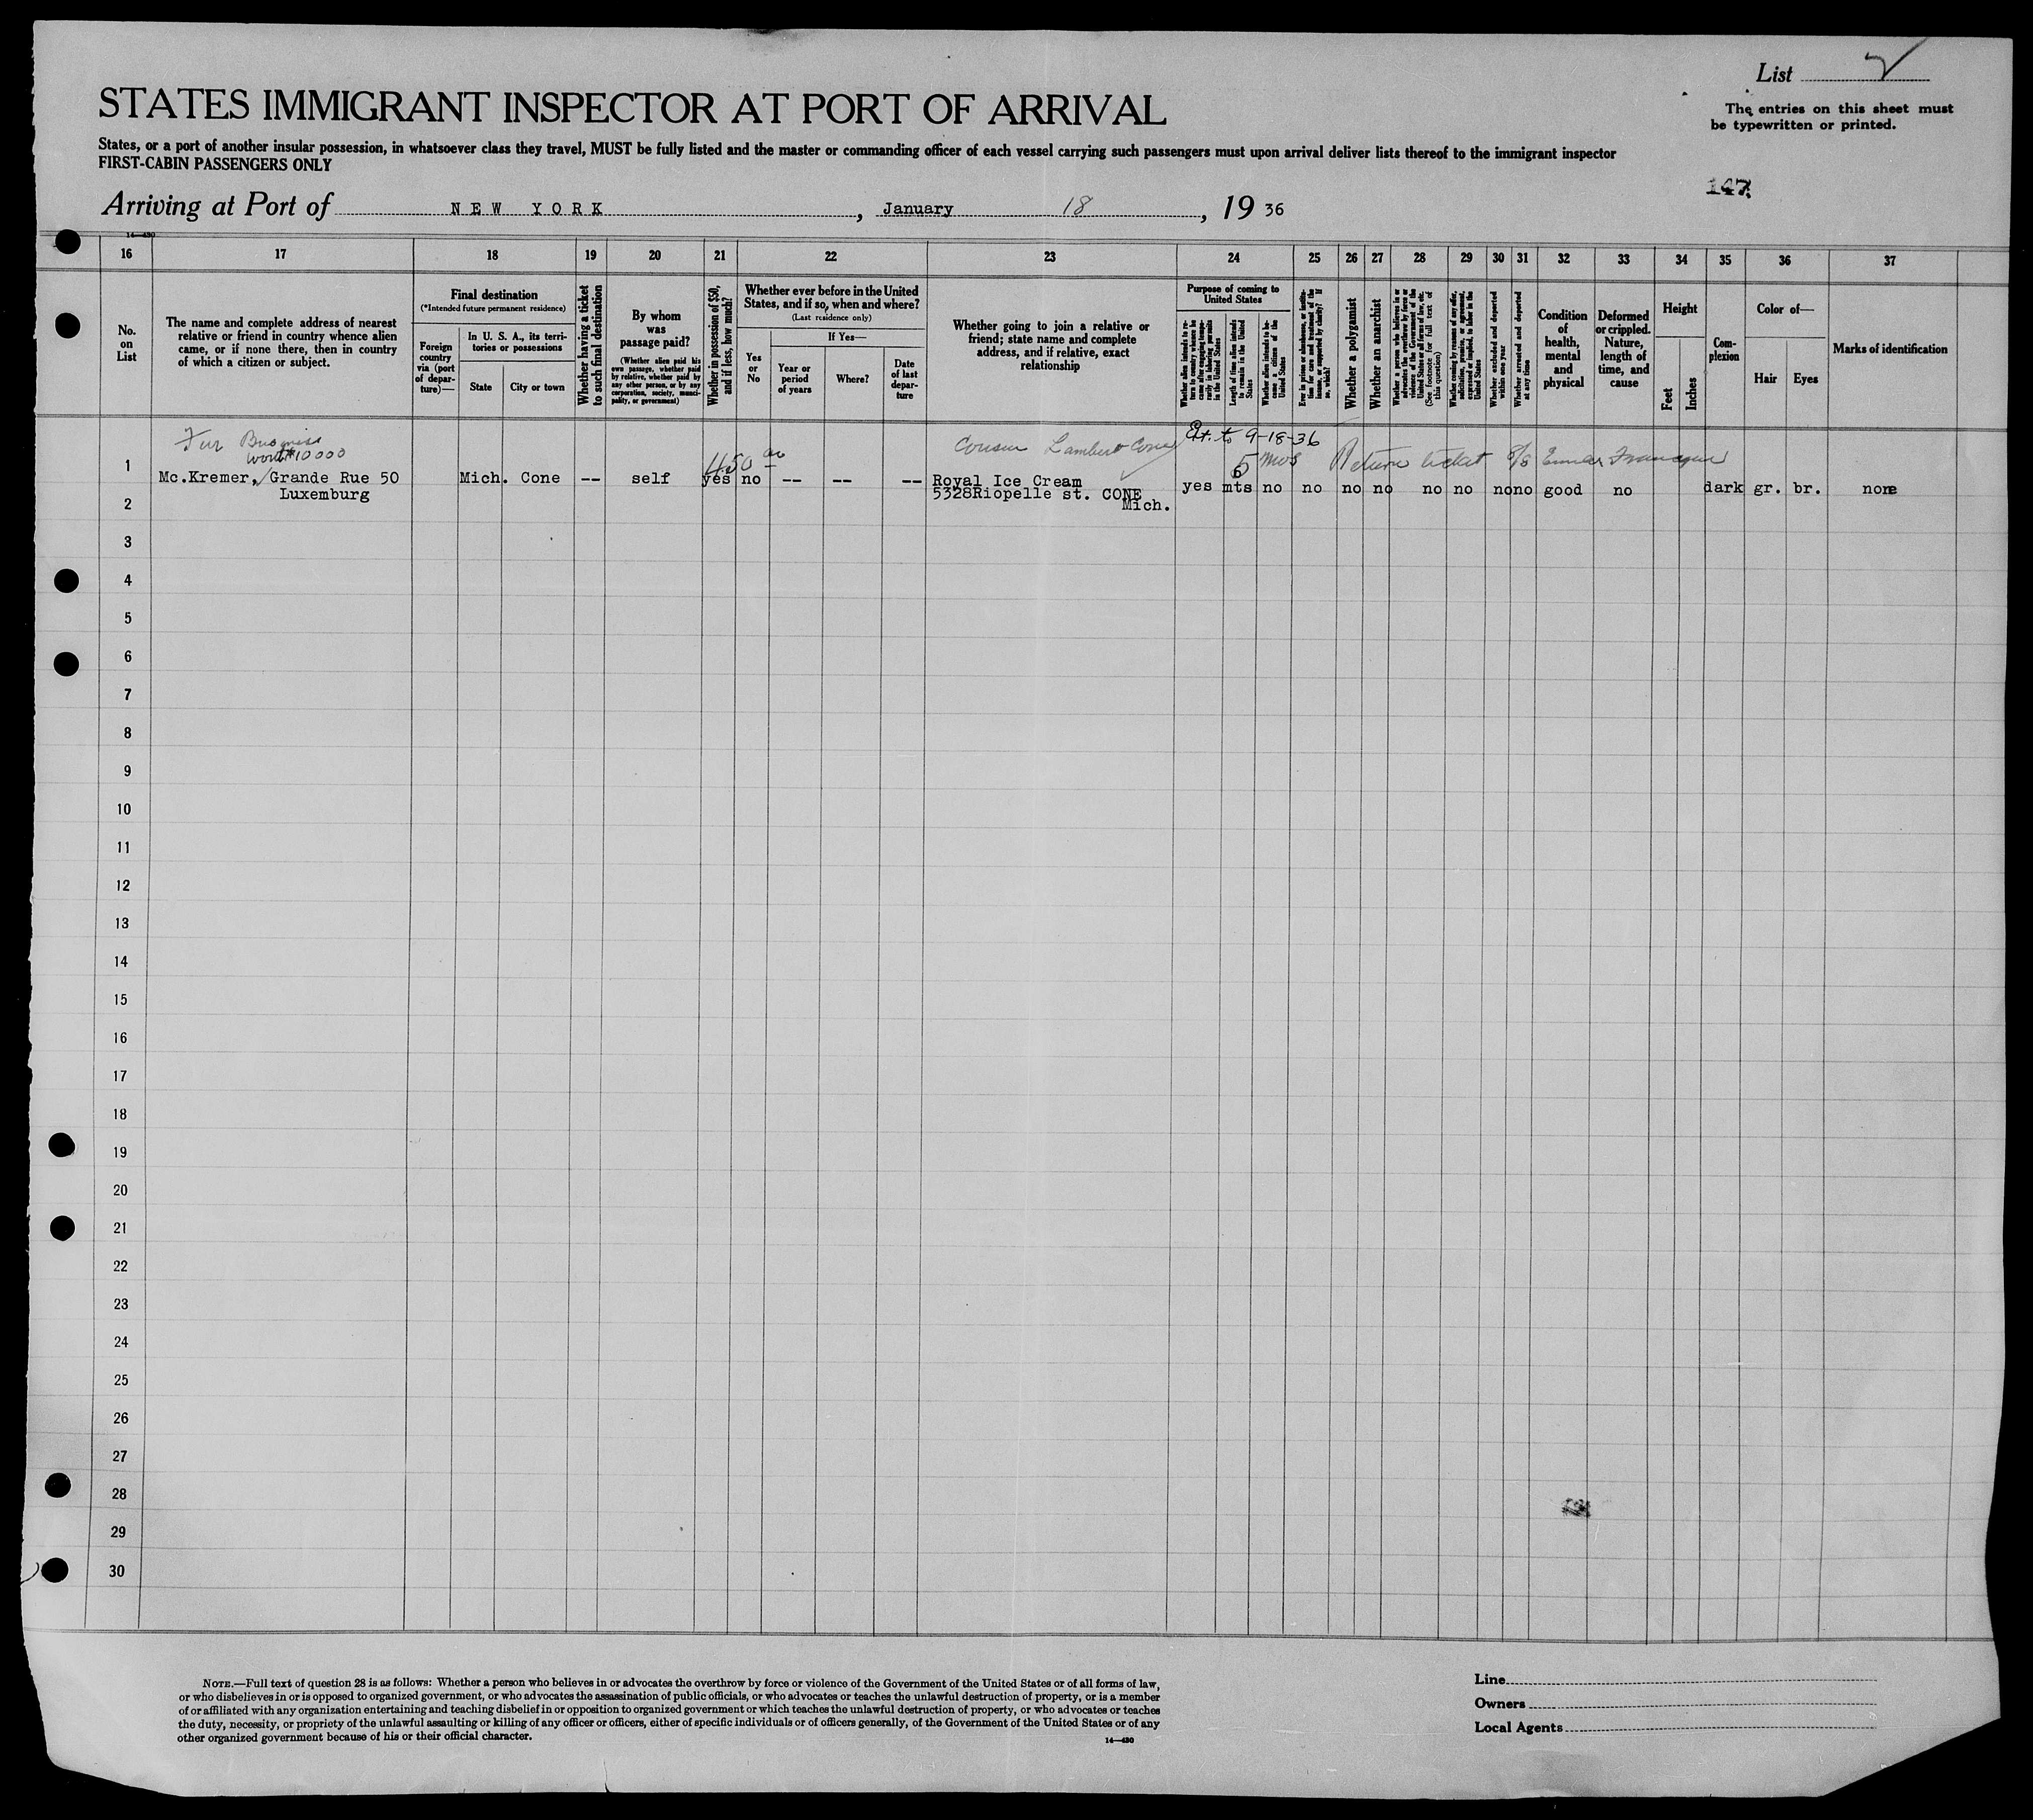 List 2
The entries on this sheet must
be typewritten or printed.
STATES IMMIGRANT INSPECTOR AT PORT OF ARRIVAL
States, or a port of another insular possession, in whatsoever class they travel, MUST be fully listed and the master or commanding officer of each vessel carrying such passengers must upon arrival deliver lists thereof to the immigrant inspector
FIRST-CABIN PASSENGERS ONLY
147
Arriving at Port of NEW YORK, January 18, 19 36
14—430
16 17 18 19 20 21 22 23 24 25 26 27 28 29 30 31 32 33 34 35 36 37
No.
on
List
The name and complete address of nearest
relative or friend in country whence alien
came, or if none there, then in country
of which a citizen or subject.
Final destination
(*Intended future permanent residence)
Foreign
country
via (port
of depar-
ture)—
In U. S. A., its terri-
tories or possessions
State
City or town
Whether having a ticket
to such final destination
By whom
was
passage paid?
(Whether alien paid his
own passage, whether paid
by relative, whether paid by
any other person, or by any
corporation, society, munici-
pality, or government)
Whether in possession of $50,
and if less, how much?
Whether ever before in the United
States, and if so, when and where?
(Last residence only)
Yes
or
No
If Yes—
Year or
period
of years
Where?
Date
of last
depar-
ture
Whether going to join a relative or
friend; state name and complete
address, and if relative, exact
relationship
Purpose of coming to
United States
Whether alien intends to re-
turn to country whence he
came after engaging tempo-
rarily in laboring pursuits
in the United States
Length of time alien intends
to remain in the United
States
Whether alien intends to be-
come a citizen of the
United States
Ever in prison or almshouse, or institu-
tion for care and treatment of the
insane, or supported by charity? If
so, which?
Whether a polygamist
Whether an anarchist
Whether a person who believes in or
advocates the overthrow by force or
violence of the Government of the
United States or all forms of law, etc.
(See footnote for full text of
this question)
Whether coming by reason of any offer,
solicitation, promise, or agreement,
expressed or implied, to labor in the
United States
Whether excluded and deported
within one year
Whether arrested and deported
at any time
Condition
of
health,
mental
and
physical
Deformed
or crippled.
Nature,
length of
time, and
cause
Height
Feet
Inches
Com-
plexion
Color of—
Hair Eyes
Marks of identification
Fur Business
Worth $10000
Cousin Lambert Cone
Ext. to 9-18-36
450 00
5 mos Return ticket S/S
1 Mc.Kremer, Grande Rue 50 Mich. Cone -- self yes no -- -- -- Royal Ice Cream
Luxemburg
5328Riopelle st. CONE
Mich.
yes 6 mts no no no no no no no no good no dark gr. br. none
2
3
4
5
6
7
8
9
10
11
12
13
14
15
16
17
18
19
20
21
22
23
24
25
26
27
28
29
30
NOTE.—Full text of question 28 is as follows: Whether a person who believes in or advocates the overthrow by force or violence of the Government of the United States or of all forms of law,
or who disbelieves in or is opposed to organized government, or who advocates the assassination of public officials, or who advocates or teaches the unlawful destruction of property, or is a member
of or affiliated with any organization entertaining and teaching disbelief in or opposition to organized government or which teaches the unlawful destruction of property, or who advocates or teaches
the duty, necessity, or propriety of the unlawful assaulting or killing of any officer or officers, either of specific individuals or of officers generally, of the Government of the United States or of any
other organized government because of his or their official character.
14—430
Line
Owners
Local Agents